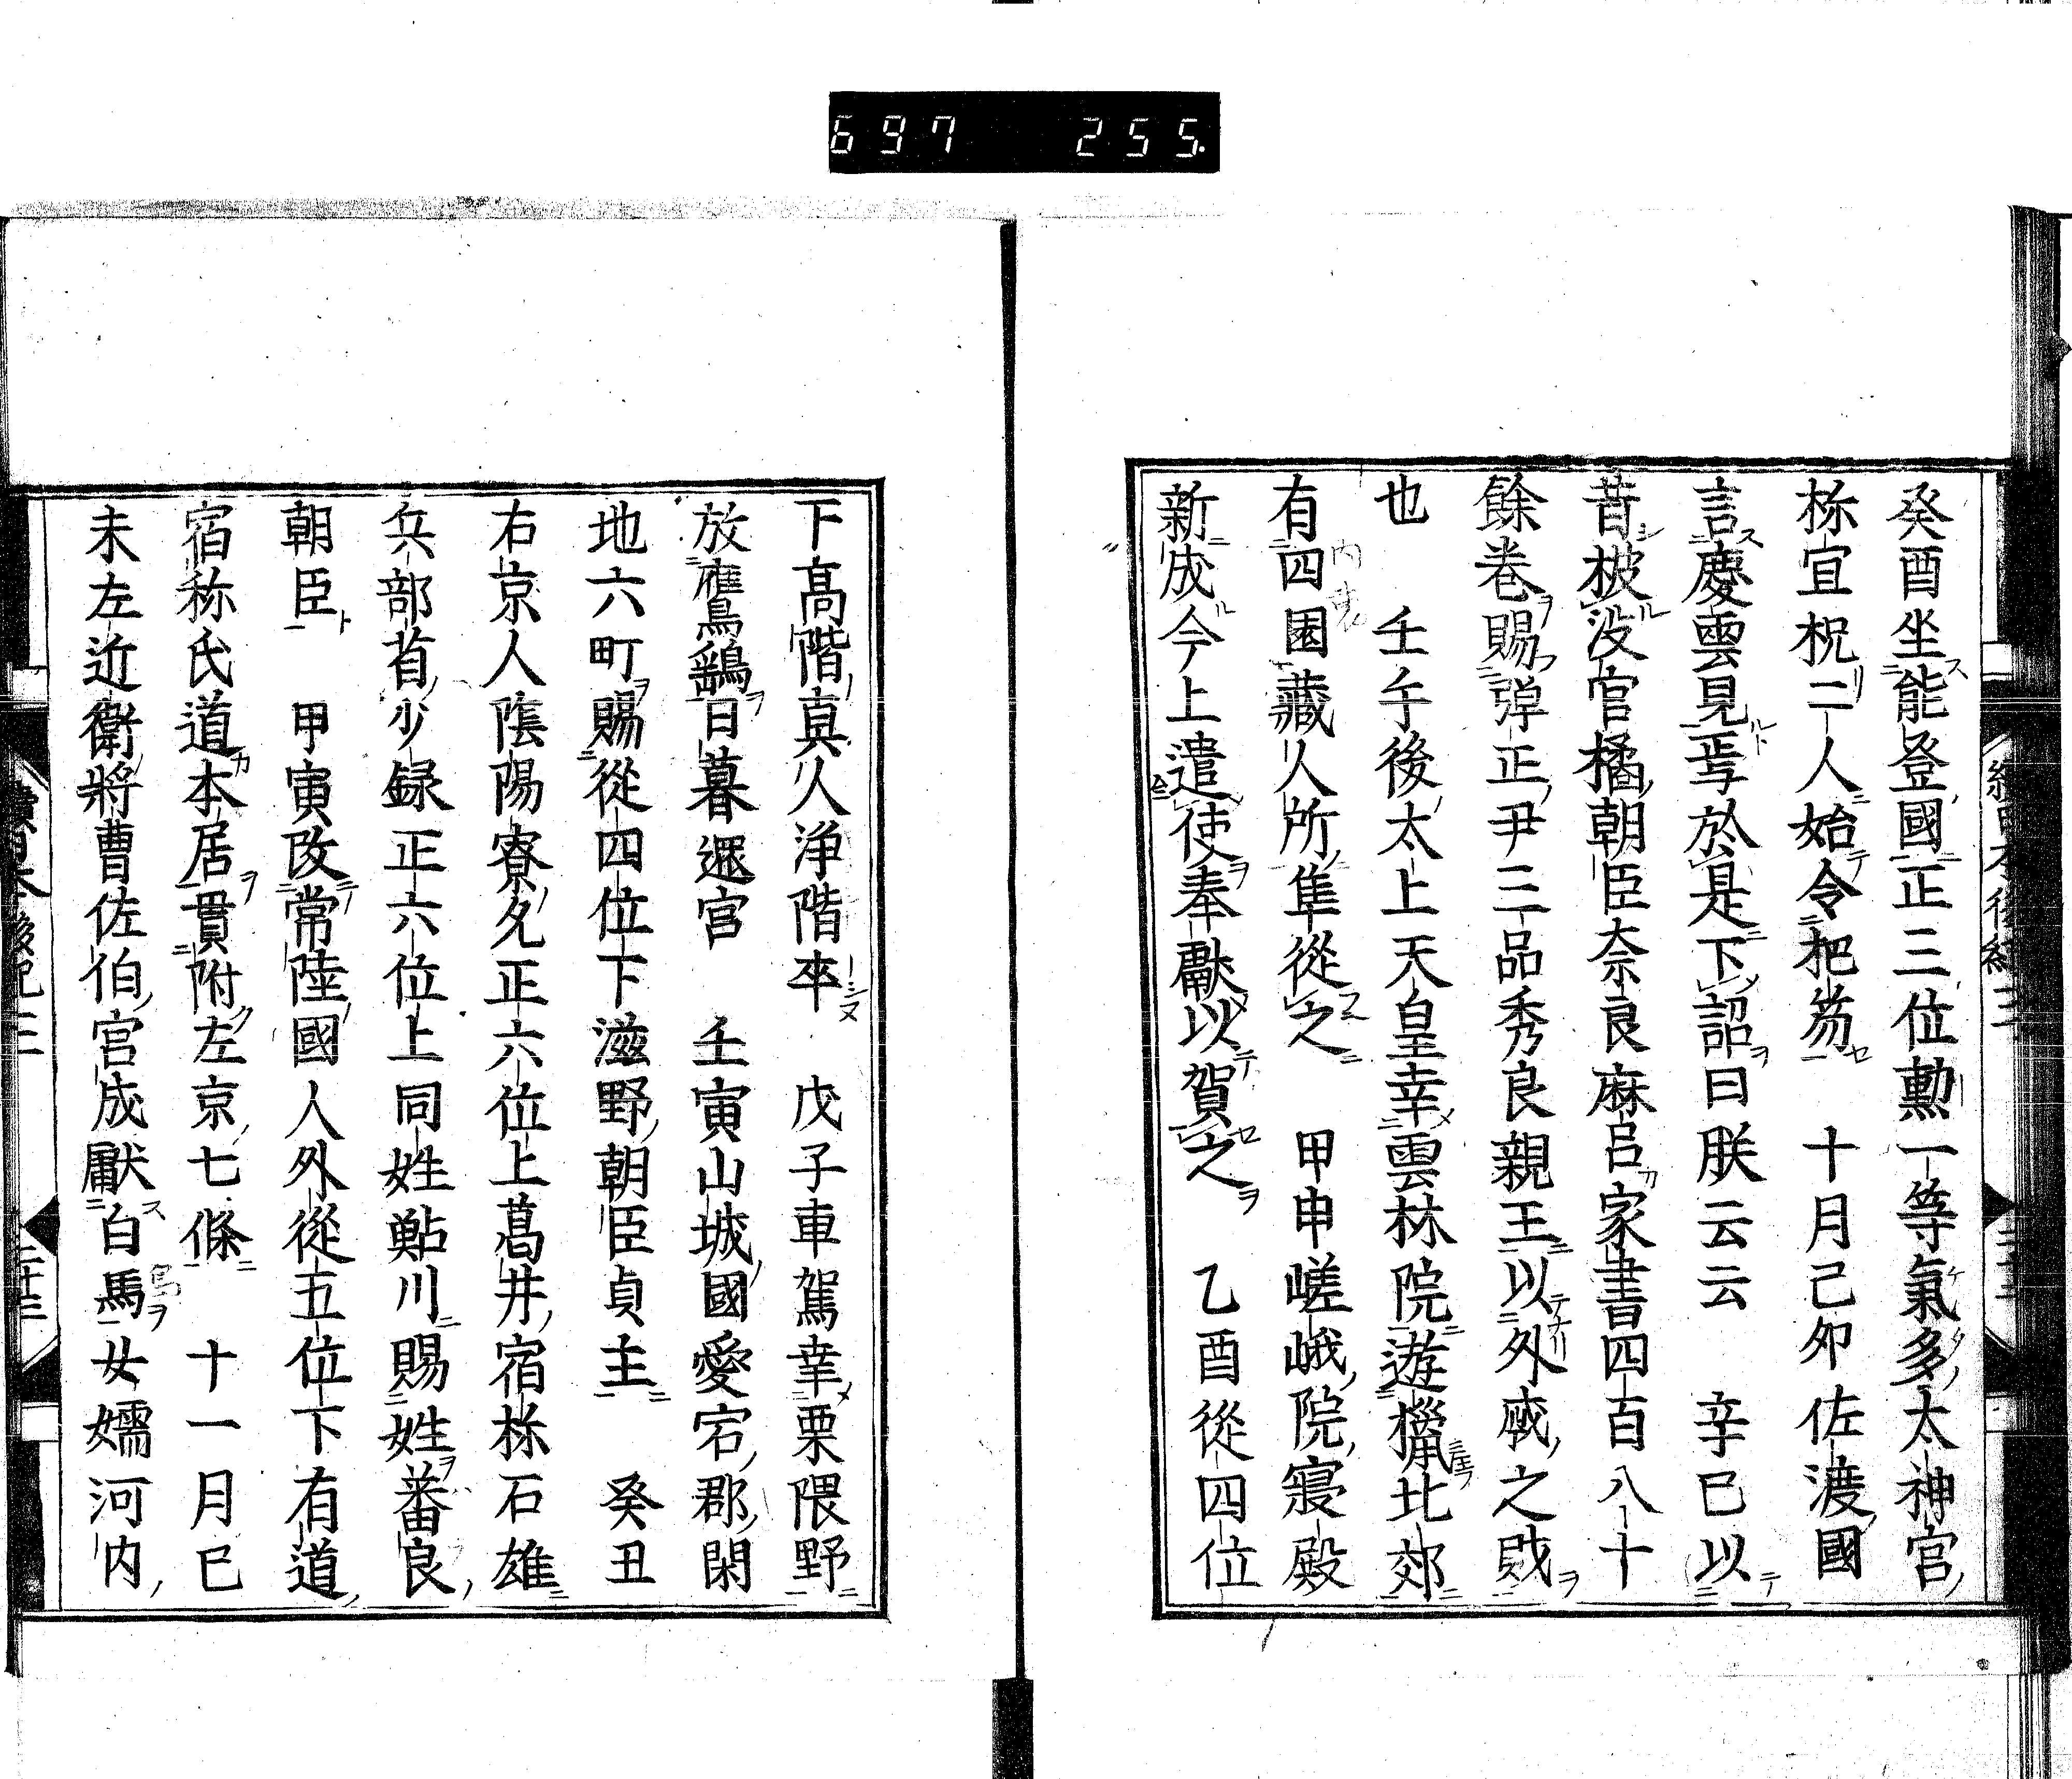 697 255.
癸酉坐能登國正三位勳一等氣多太神宮
祢宜祝二人始令把笏　十月己夘佐渡國
言慶雲見焉於是下詔曰朕云云　辛巳以
昔被没官橘朝臣奈良麻呂家書四百八十
餘巻賜彈正尹三品秀良親王以外戚之財
也　壬午後太上天皇幸雲林院遊獵北郊
有四圍藏人所隼從之　甲申嵯峨院寢殿
新成今上遣使奉獻以賀之　乙酉從四位
下髙階真人浄階卒　戊子車駕幸栗隈野
放鷹鷂日暮還宮　壬寅山城國愛宕郡閑
地六町賜從四位下滋野朝臣貞主　癸丑
右京人陰陽寮允正六位上葛井宿祢石雄
兵部省少録正六位上同姓鮎川賜姓蕃良
朝臣　甲寅改常陸國人外從五位下有道
宿祢氏道本居貫附左京七條　十一月巳
未左近衛將曹佐伯宮成獻白馬女孺河内
續日本後紀三